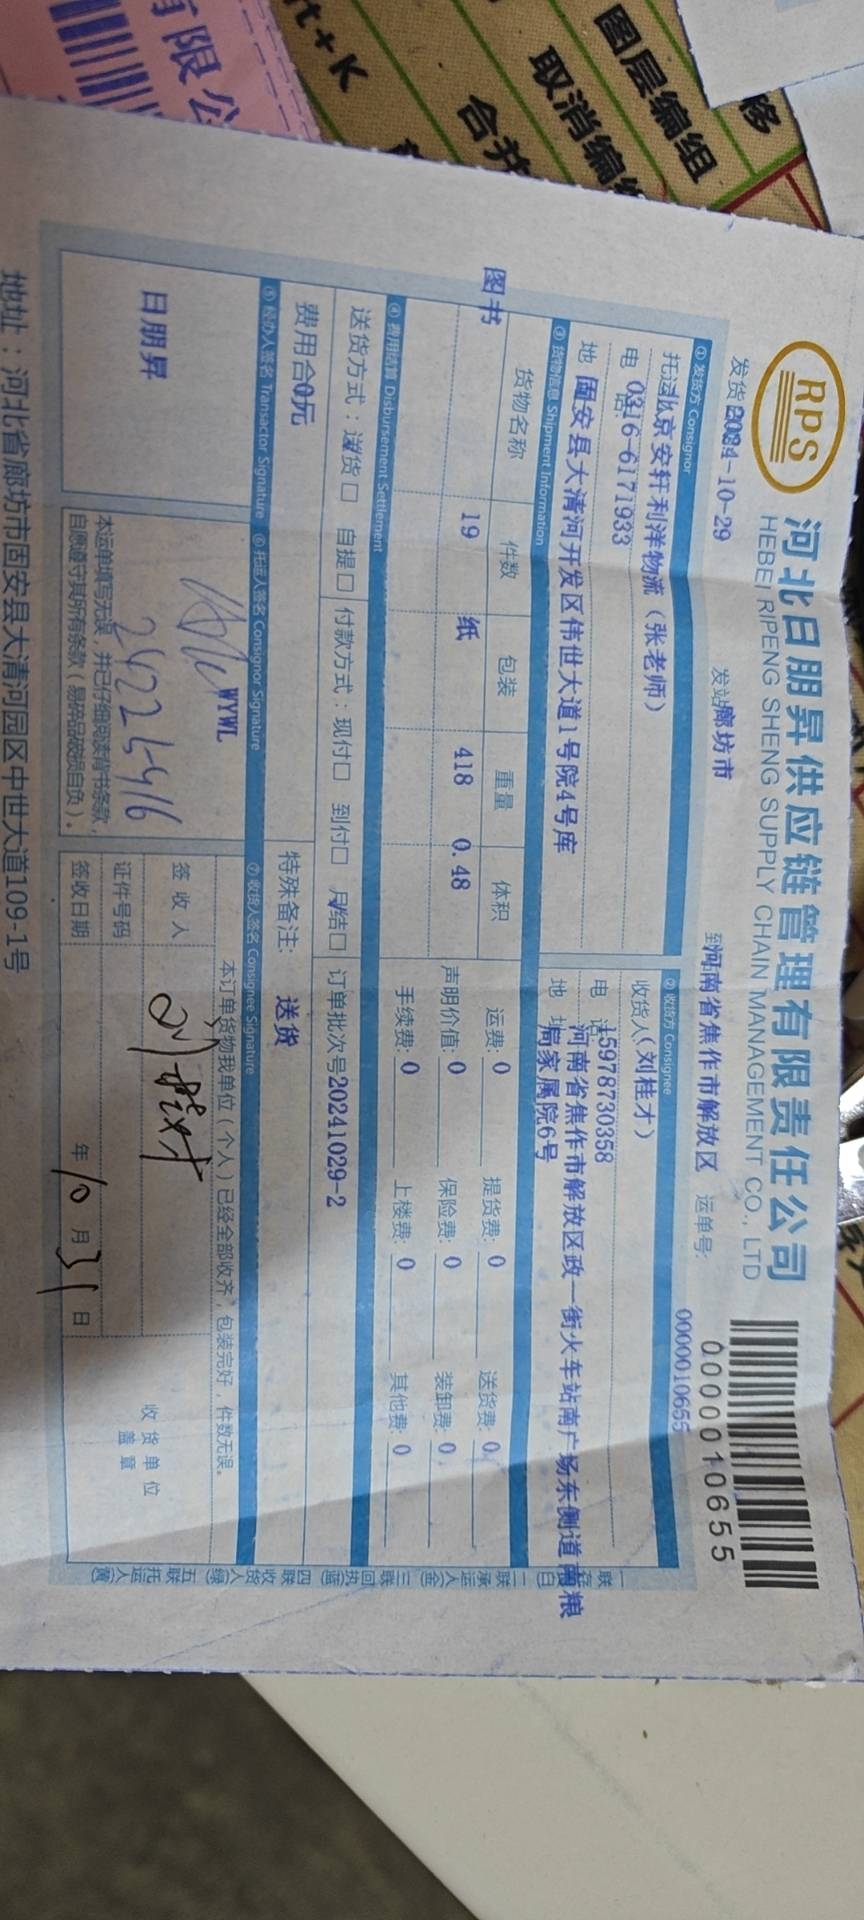 河北日朋昇供应链管理有限责任公司
HEBEI RIPENG SHENG SUPPLY CHAIN MANAGEMENT CO., LTD
RPS
0000010655
发货 2024-10-29
发站 廊坊市
到站 河南省焦作市解放区
运单号: 0000010655
① 发货方 Consignor
托运 北京安轩利洋物流（张老师）
电话 0316-6171933
地 固安县大清河开发区伟世大道1号院4号库
② 收货方 Consignee
收货人（刘桂才）
电 话 15978730358
地 址 河南省焦作市解放区政一街火车站南广场东侧道南粮
局家属院6号
③ 货物信息 Shipment Information
货物名称 件数 包装 重量 体积
图书 19 纸 418 0.48
运费: 0 提货费: 0 送货费: 0
声明价值: 0 保险费: 0 装卸费: 0
手续费: 0 上楼费: 0 其他费: 0
④ 费用结算 Disbursement Settlement
送货方式：送货□ 自提□ 付款方式：现付□ 到付□ 月结□ 订单批次号 20241029-2
费用合 0元
特殊备注: 送货
⑤ 经办人签名 Transactor Signature
日朋昇
⑥ 托运人签名 Consignor Signature
WYWL
本运单填写无误，并已仔细阅读背书条款，
自愿遵守其所有条款（易碎品破损自负）。
⑦ 收货人签名 Consignee Signature
本订单货物我单位（个人）已经全部收齐，包装完好，件数无误。
签 收 人
证件号码
签收日期 年 10 月 31 日
收 货 单 位
盖 章
地址：河北省廊坊市固安县大清河园区中世大道109-1号
有限公
t+K
图层编组
取消编
合并
移